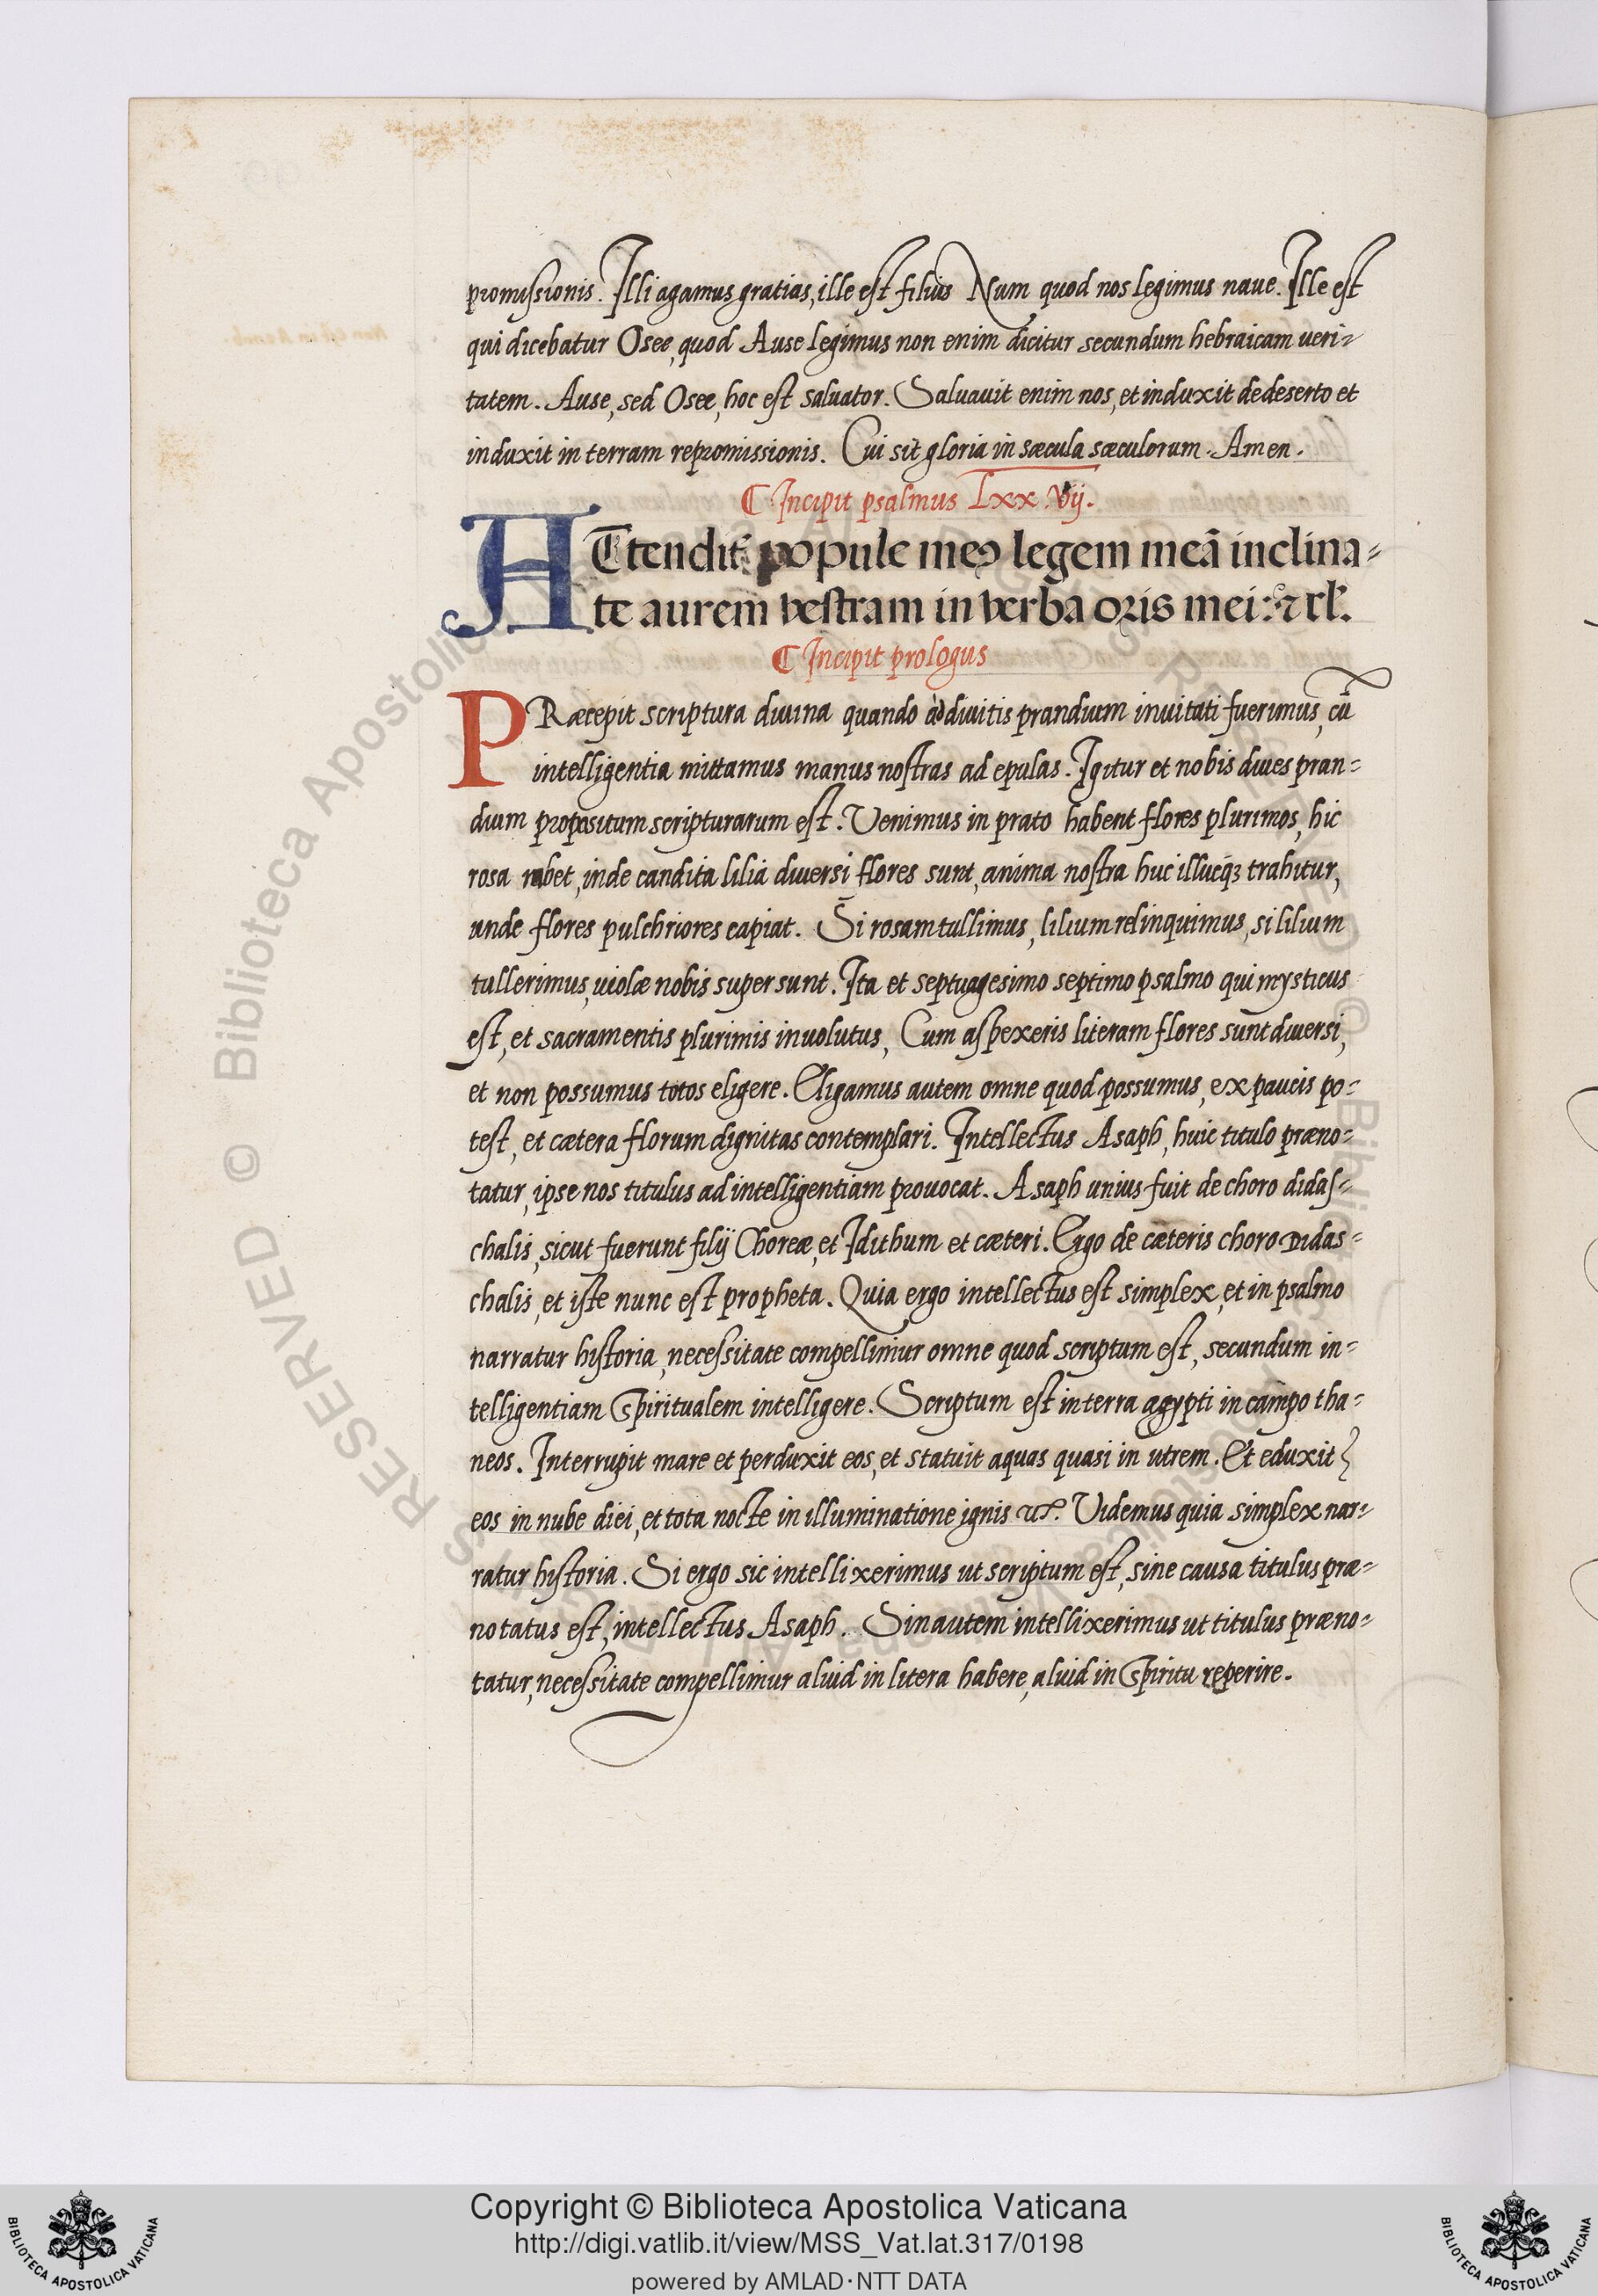 promissionis. Illi agamus gratias, ille est filius Num quod nos legimus naue. Ille est
qui dicebatur Osee, quod Ause legimus non enim dicitur secundum hebraicam veri-
tatem. Ause, sed Osee, hoc est salvator. Saluauit enim nos, et induxit de deserto et
induxit in terram repromissionis. Cui sit gloria in sæcula sæculorum. Amen.
Incipit psalmus Lxx Vij.
ATtendite popule meo legem meā inclina-
te aurem vestram in verba oris mei: ⁊ cť.
Incipit prologus
PRæcepit scriptura diuina quando ad diuitis prandium inuitati fuerimus, cū
intelligentia mittamus manus nostras ad epulas. Igitur et nobis diues pran-
dium propositum scripturarum est. Venimus in prato habent flores plurimos, hic
rosa rubet, inde candita lilia diuersi flores sunt, anima nostra huc illucq; trahitur,
unde flores pulchriores capiat. Si rosam tullimus, lilium relinquimus, si lilium
tullerimus, uiolæ nobis supersunt. Ita et septuagesimo septimo psalmo qui mysticus
est, et sacramentis plurimis inuolutus, Cum aspexeris literam flores sunt diuersi,
et non possumus totos eligere. Eligamus autem omne quod possumus, ex paucis po-
test, et cætera florum dignitas contemplari. Intellectus Asaph, huic titulo præno-
tatur, ipse nos titulus ad intelligentiam prouocat. Asaph unius fuit de choro didas-
chalis, sicut fuerunt filij Choreæ, et Idithum et cæteri. Ergo de cæteris choro Didas-
chalis, et iste nunc est propheta. Quia ergo intellectus est simplex, et in psalmo
narratur historia, necessitate compellimur omne quod scriptum est, secundum in-
telligentiam spiritualem intelligere. Scriptum est in terra agypti in campo tha-
neos. Interrupit mare et perduxit eos, et statuit aquas quasi in utrem. Et eduxit
eos in nube diei, et tota nocte in illuminatione ignis Videmus quia simplex nar-
ratur historia. Si ergo sic intellixerimus ut scriptum est, sine causa titulus præ-
notatus est, intellectus Asaph. Sin autem intellixerimus ut titulus præno-
tatur, necessitate compellimur aliud in litera habere, aliud in spiritu reperire.
Copyright © Biblioteca Apostolica Vaticana
http://digi.vatlib.it/view/MSS_Vat.lat.317/0198
powered by AMLAD·NTT DATA
BIBLIOTECA APOSTOLICA VATICANA
BIBLIOTECA APOSTOLICA VATICANA